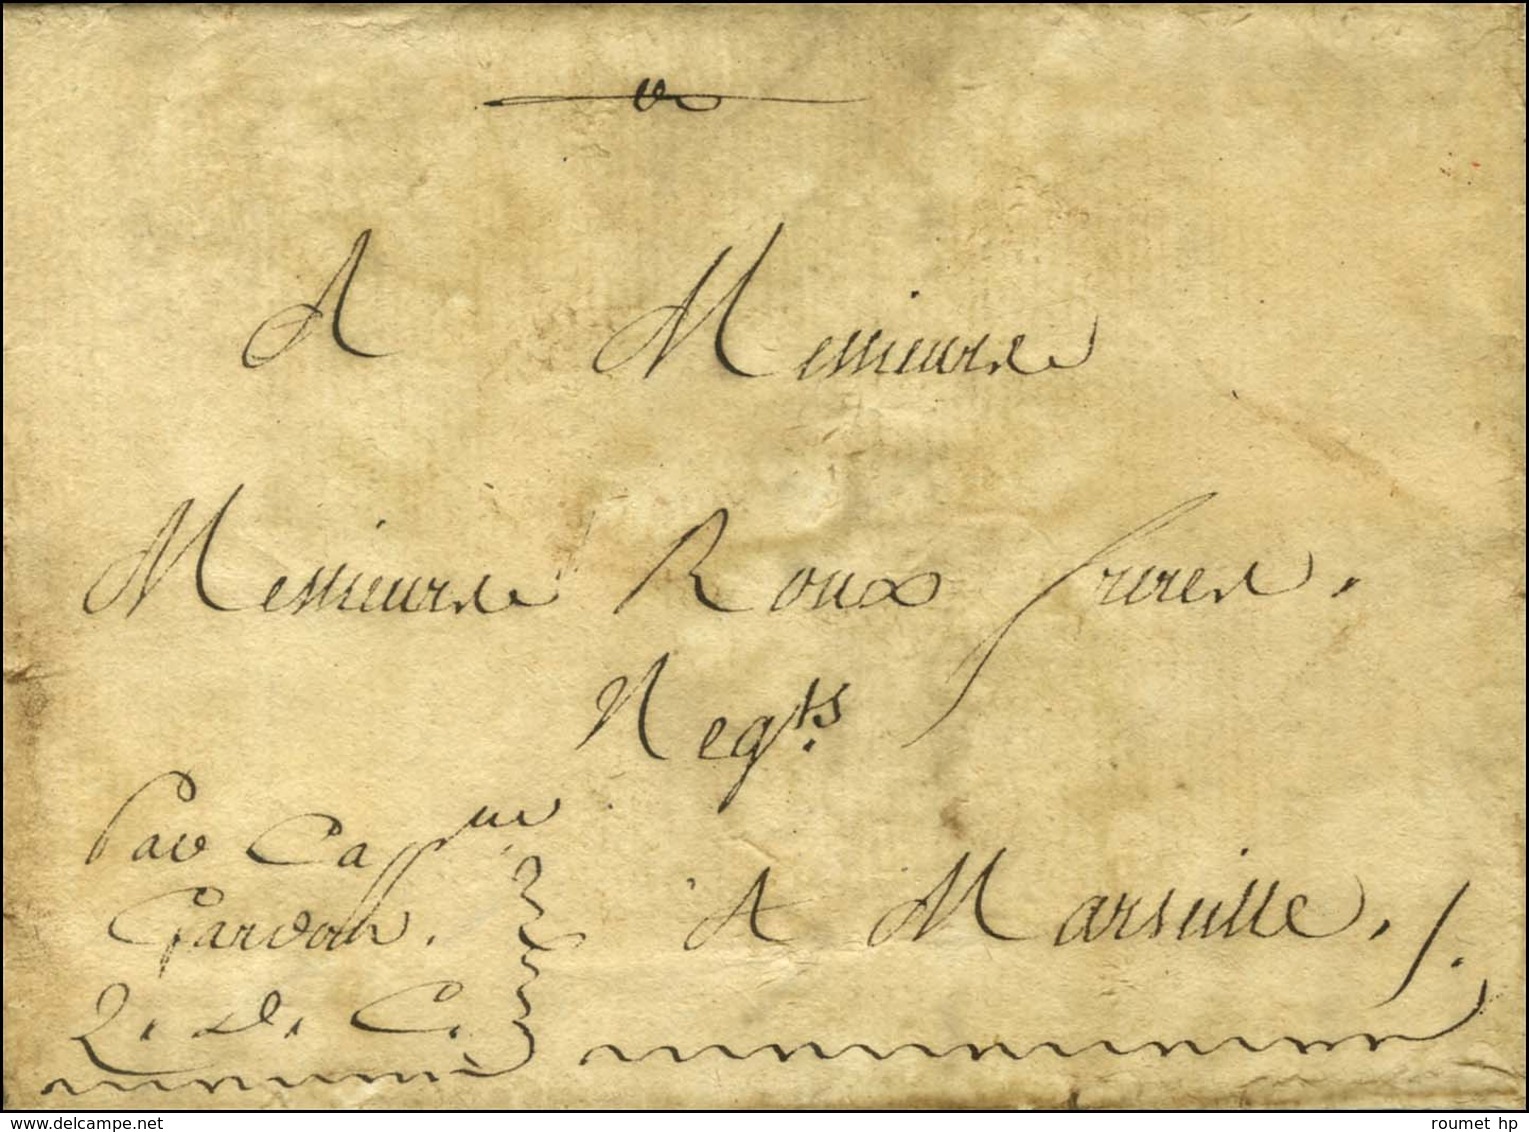 A Messieurs
Messieurs Roux freres.
Negts
Par Capne
Gardon.
Q. D. C.
A Marseille. /.
delcampe.net
roumet hp